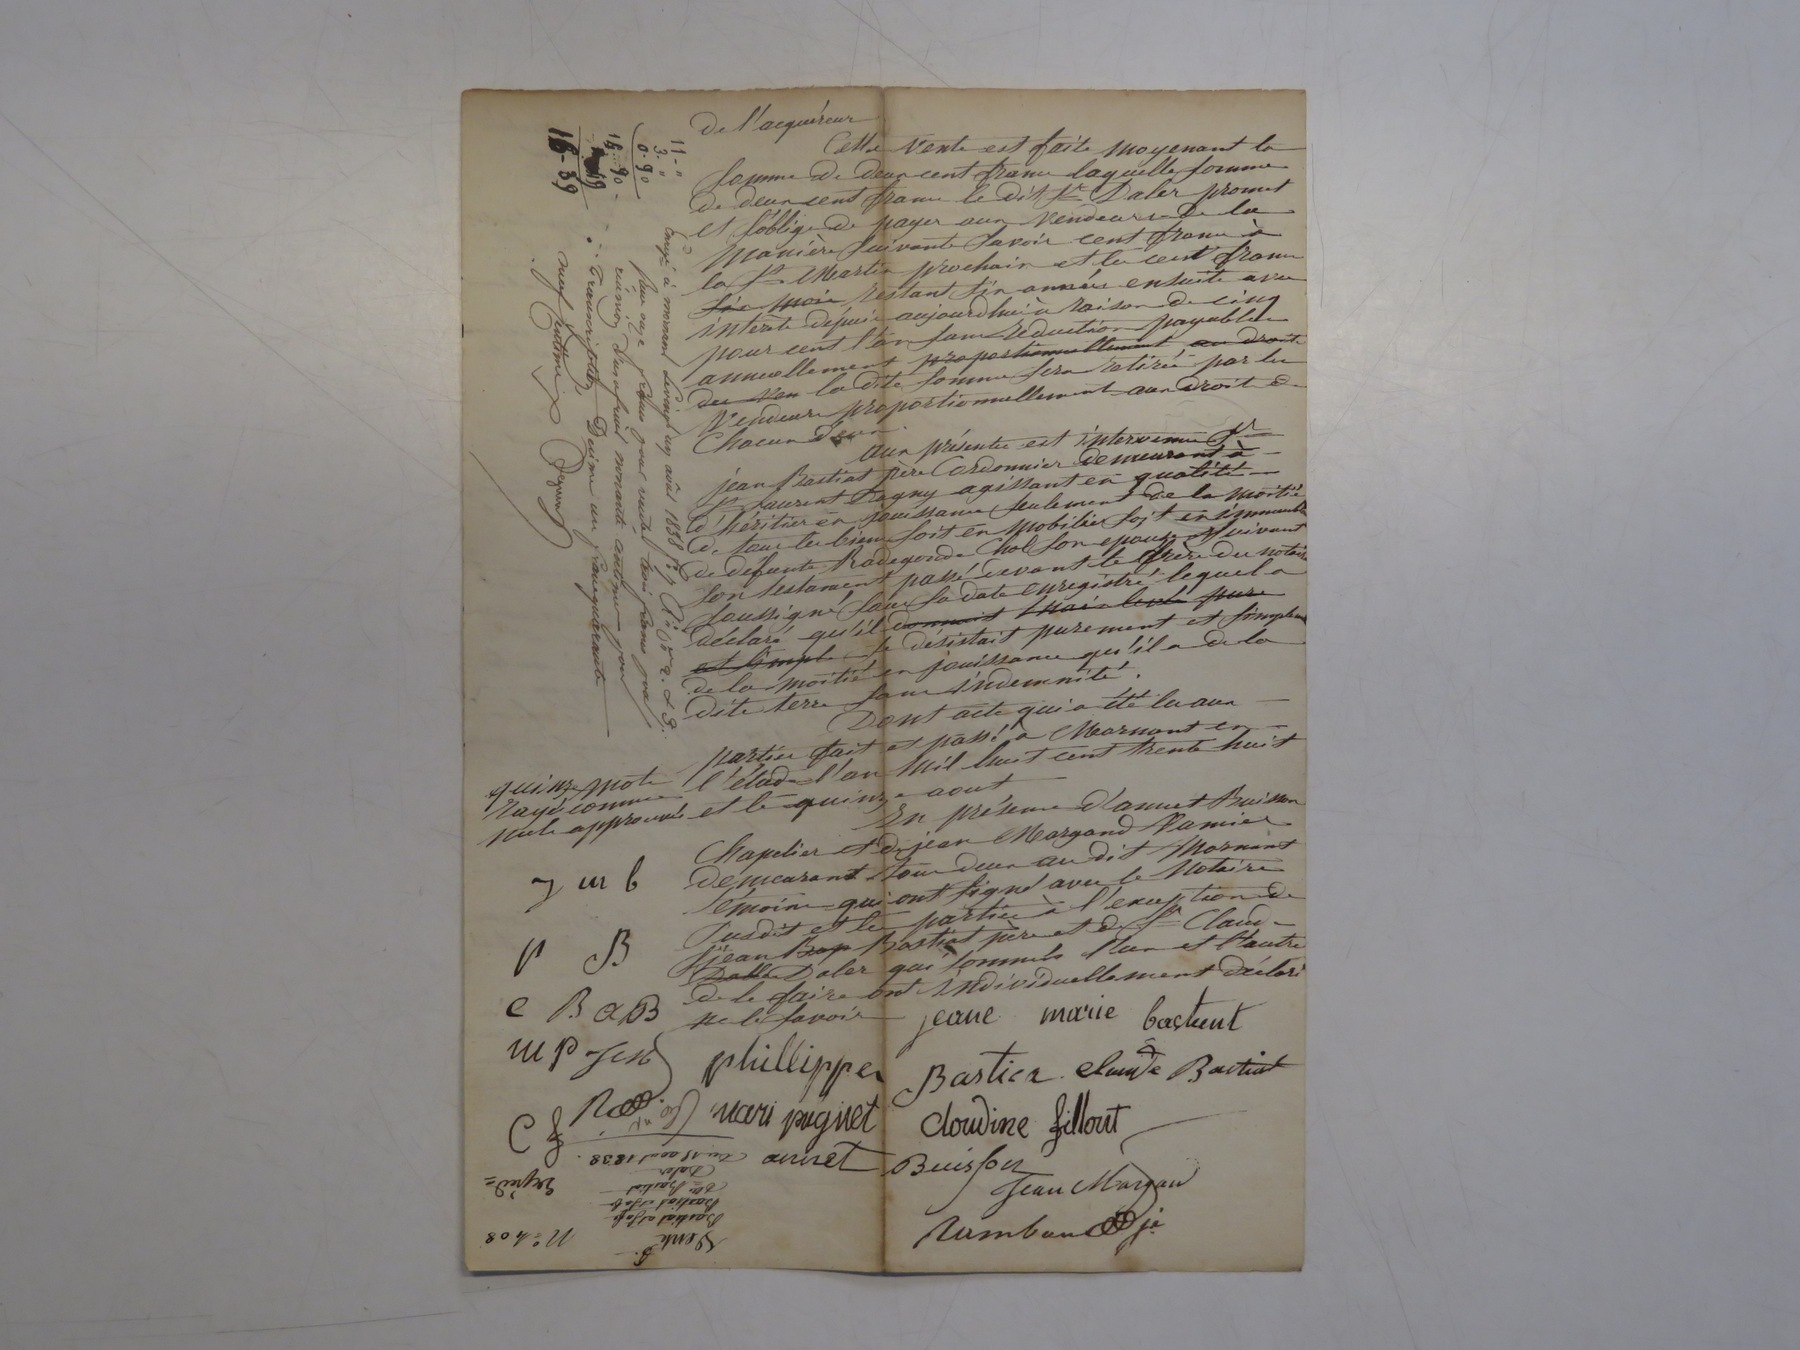 de l'acquéreur
Cette Vente est faite moyenant la
somme de deux cent francs laquelle somme
de deux cent francs le dit Sr Daler promet
et s'oblige de payer aux Vendeurs de la
manière suivante Savoir cent francs à
la St Martin prochain et les cent francs
six mois restant fin année ensuite avec
intérêts depuis aujourdhui à raison de cinq
pour cent l'an sans réduction payables
annuellement proportionnellement au droit
des Ven la dite somme sera retirée par les
Vendeurs proportionnellement aux droit de
Chacun d'eux.
aux présentes est intervenu Sr
jean Bastiat père Cordonnier demeurant à
St Laurent d'agny agissant en qualité
d'héritier en jouissance seulement de la moitié
de tous les biens soit en mobilier soit en immeubles
de défunte Radegonde Chol son epouse suivant
son testament passé devant le frère du notaire
soussigné sous sa date enregistré lequel a
déclaré qu'il donnait main levée pure
et simple se désistait purement et simplement
de la moitié en jouissance qu'il a de la
dite terre sans indemnité.
Dont acte qui a été lu aux
parties fait et passé à Mornant en
l'étude l'an Mil huit cent trente huit
et le quinze aout
En présence d'annet Buisson
Chapelier et de jean Margand Vannier
demeurant tous deux au dit Mornant
témoins qui ont signé avec le Notaire
susdit et les parties à l'exception de
jean Bap Bastiat père et de Sr Claude
Dalle Daler qui sommés l'un et l'autre
de le faire ont individuellement déclaré
ne le savoir
quinze mots
rayé comme
nuls approuvés
p B
c B a B
m p
C f
jeane marie bastient
phillippe Bastien claude Bastiat
mari pugnet claudine fillout
annet Buisson
Jean Margan
Rambaud je
11 - "
3 - "
0 - 90
14 - 90
16 - 39
Enregé à mornant le vingt un août 1838
reçu onze francs pour vente trois francs pour
réunion d'usufruit nonante centimes pour
Transcription Decime un franc quarante
neuf centimes
N° 408
Vente
Bastiat
Daler
Du 15 aout 1838.
Expéd=